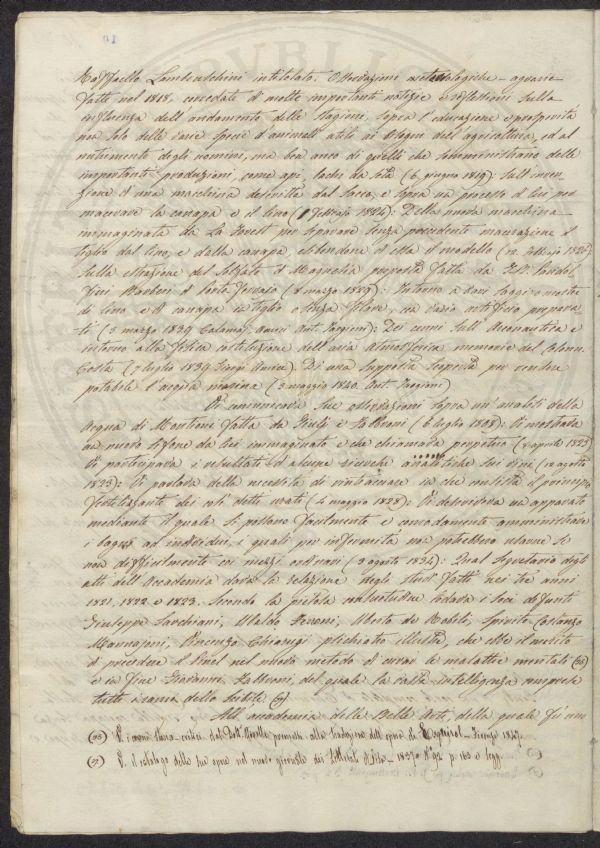 Raffaello Lambruschini intitolata. Osservazioni meteorologiche - agrarie
fatte nel 1818, corredate di molte importanti notizie e riflessioni sulla
influenza dell'andamento delle stagioni, sopra l'educazione e prosperità
non solo delle varie specie d'animali utili ai bisogni dell'agricoltura, ed al
nutrimento degli uomini, ma ben anco di quelli che somministrano delle
importanti produzioni, come api, bachi da seta (6 giugno 1819): Sull'inven
zione di una macchina descritta dal Sacco, e sopra un processo di lui per
macerare la canapa e il lino (1 febbrajo 1824): Della nuova macchina
immaginata da La Forest per separare senza precedente macerazione il
tiglio dal lino, e dalla canapa, esibendone di essa il modello (12 febbrajo
Sulla estrazione del Solfato di Magnesia proposta fatta da
di Porto Ferrajo (8 marzo 1829): Intorno a vari saggi e mostre
di lino e di canapa in tiglio e senza filare, con vario artifizio prepara
ti (3 marzo 1839 Calamaj, Amici Ant. Targioni): Dei cenni sull'Aeronautica e
intorno alla fisica costituzione dell'aria Atmosferica memorie del
Costa (7 luglio 1839 Amici): Di una supposta scoperta per rendere
potabile l'acqua marina (3 maggio 1840. Ant. Targioni)
Vi comunicava sue osservazioni sopra un'analisi della
Acqua di Montione fatta da Giulj e Fabroni (6 luglio 1808): Vi mostrava
un nuovo sifone da lui immaginato e che chiamava perpetuo (9 aprile 1823
Vi partecipava i resultati d'alcune ricerche analitiche sui vini (12 agosto
1823): Vi parlava della necessità di rintracciare in che consista il principio
fertilizzante dei così detti urati (4 maggio 1828): Vi descriveva un apparato
mediante il quale si possono facilmente e comodamente amministrare
i bagni ad individui, i quali per infermità non potrebbero usarne se
non difficilmente coi mezzi ordinari (3 agosto 1834): Qual Segretario degli
atti dell'Accademia dava la relazione negli studi fatti nei tre anni
1821, 1822 e 1823. Secondo la pietosa consuetudine lodava i soci defunti
Giuseppe Sarchiani, Ubaldo Feroni, Uberto de Nobili, Spirito Costanzo
Mannajoni, Vincenzo Chiarugi psichiatro illustre, che ebbe il merito
di precedere il Pinel nel nuovo metodo di curare le malattie mentali
e in fine Giovanni Fabbroni, del quale la vasta intelligenza comprese
tutti i rami dello scibile
All'accademia delle Belle Arti, della quale fu uno
V. i cenni storico-critici del Dott. premessi alla traduzione dell'opera di Esquirol - Firenze 1847.
V. il catalogo delle sue opere nel nuovo giornale dei Letterati di Pisa - 1837 N° 92 p. 163 e segg.